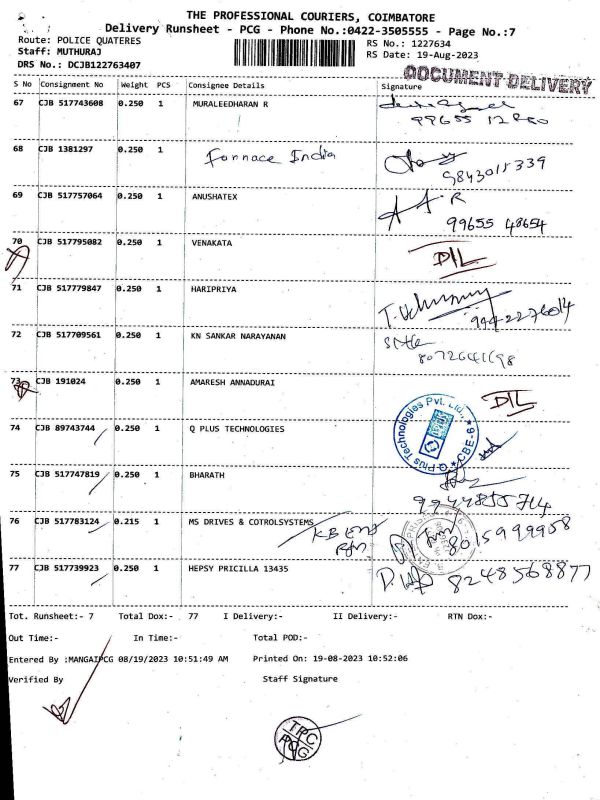 THE PROFESSIONAL COURIERS, COIMBATORE
Delivery Runsheet - PCG - Phone No.:0422-3505555 - Page No.:7
Route: POLICE QUATERES RS No.: 1227634
Staff: MUTHURAJ RS Date: 19-Aug-2023
DRS No.: DCJB122763407
DOCUMENT DELIVERY
S No Consignment No Weight PCS Consignee Details Signature
67 CJB 517743608 0.250 1 MURALEEDHARAN R
68 CJB 1381297 0.250 1 Fornace India
9843015339
69 CJB 517757064 0.250 1 ANUSHATEX
99655 48654
70 CJB 517795082 0.250 1 VENAKATA D/L
71 CJB 517779847 0.250 1 HARIPRIYA
9942276014
72 CJB 517709561 0.250 1 KN SANKAR NARAYANAN
8072641698
73 CJB 191024 0.250 1 AMARESH ANNADURAI D/L
74 CJB 89743744 0.250 1 Q PLUS TECHNOLOGIES
Q Plus Technologies Pvt. Ltd., CBE-6
75 CJB 517747819 0.250 1 BHARATH
9944855714
76 CJB 517783124 0.215 1 MS DRIVES & COTROLSYSTEMS
8015999958
77 CJB 517739923 0.250 1 HEPSY PRICILLA 13435
8248568877
Tot. Runsheet:- 7 Total Dox:- 77 I Delivery:- II Delivery:- RTN Dox:-
Out Time:- In Time:- Total POD:-
Entered By :MANGAIPCG 08/19/2023 10:51:49 AM Printed On: 19-08-2023 10:52:06
Verified By Staff Signature
TPC
PCG